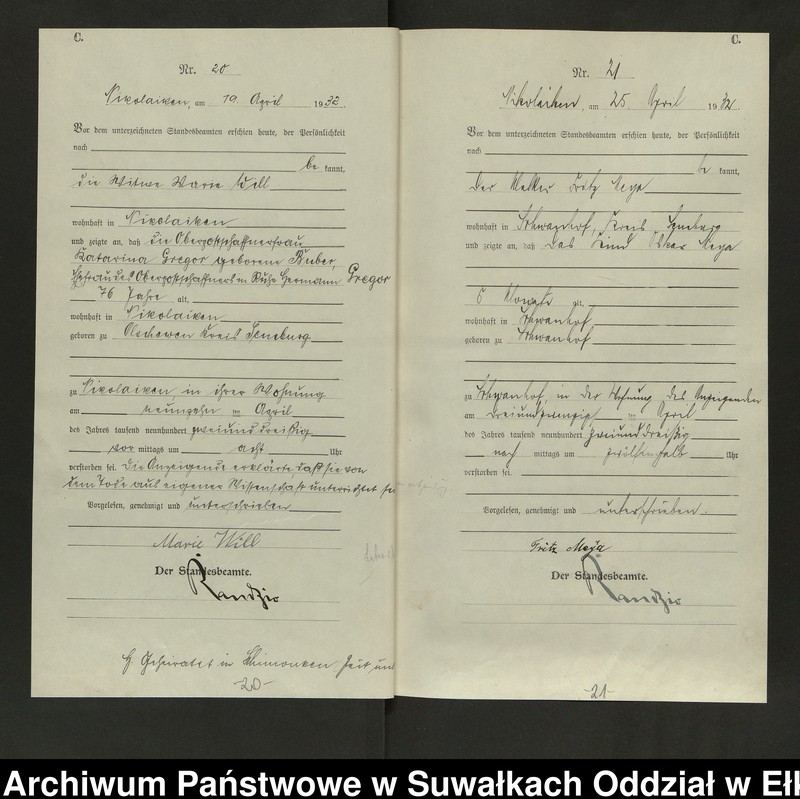 C.
Nr. 20
Nikolaiken, am 19. April 1932.
Vor dem unterzeichneten Standesbeamten erschien heute, der Persönlichkeit
nach
be kannt,
die Witwe Marie Will
wohnhaft in Nikolaiken
und zeigte an, daß die Oberpostschaffnerfrau
Katarina Gregor geborene Buber,
Ehefrau des Oberpostschaffners in Ruhe Hermann Gregor
76 Jahre alt,
wohnhaft in Nikolaiken
geboren zu Olschewen Kreis Sensburg
zu Nikolaiken, in ihrer Wohnung
am neunzehn ten April
des Jahres tausend neunhundert zweiunddreißig
vor mittags um acht Uhr
verstorben sei. Die Anzeigende erklärte, daß sie von
dem Tode aus eigener Wissenschaft unterrichtet sei
Vorgelesen, genehmigt und unterschrieben
Marie Will
Der Standesbeamte.
Randzio
Geheiratet in Schimonken
-20-
C.
Nr. 21
Nikolaiken, am 25. April 1932.
Vor dem unterzeichneten Standesbeamten erschien heute, der Persönlichkeit
nach
be kannt,
der Melker Fritz Meya
wohnhaft in Kreis Sensburg
und zeigte an, daß das Kind Oskar Meya
6 Monate alt,
wohnhaft in
geboren zu
zu in der Wohnung des Anzeigenden
am dreiundzwanzig ten April
des Jahres tausend neunhundert zweiunddreißig
nach mittags um zwölfeinhalb Uhr
verstorben sei.
Vorgelesen, genehmigt und unterschrieben.
Fritz Meya
Der Standesbeamte.
Randzio
-21-
Archiwum Państwowe w Suwałkach Oddział w Ełk